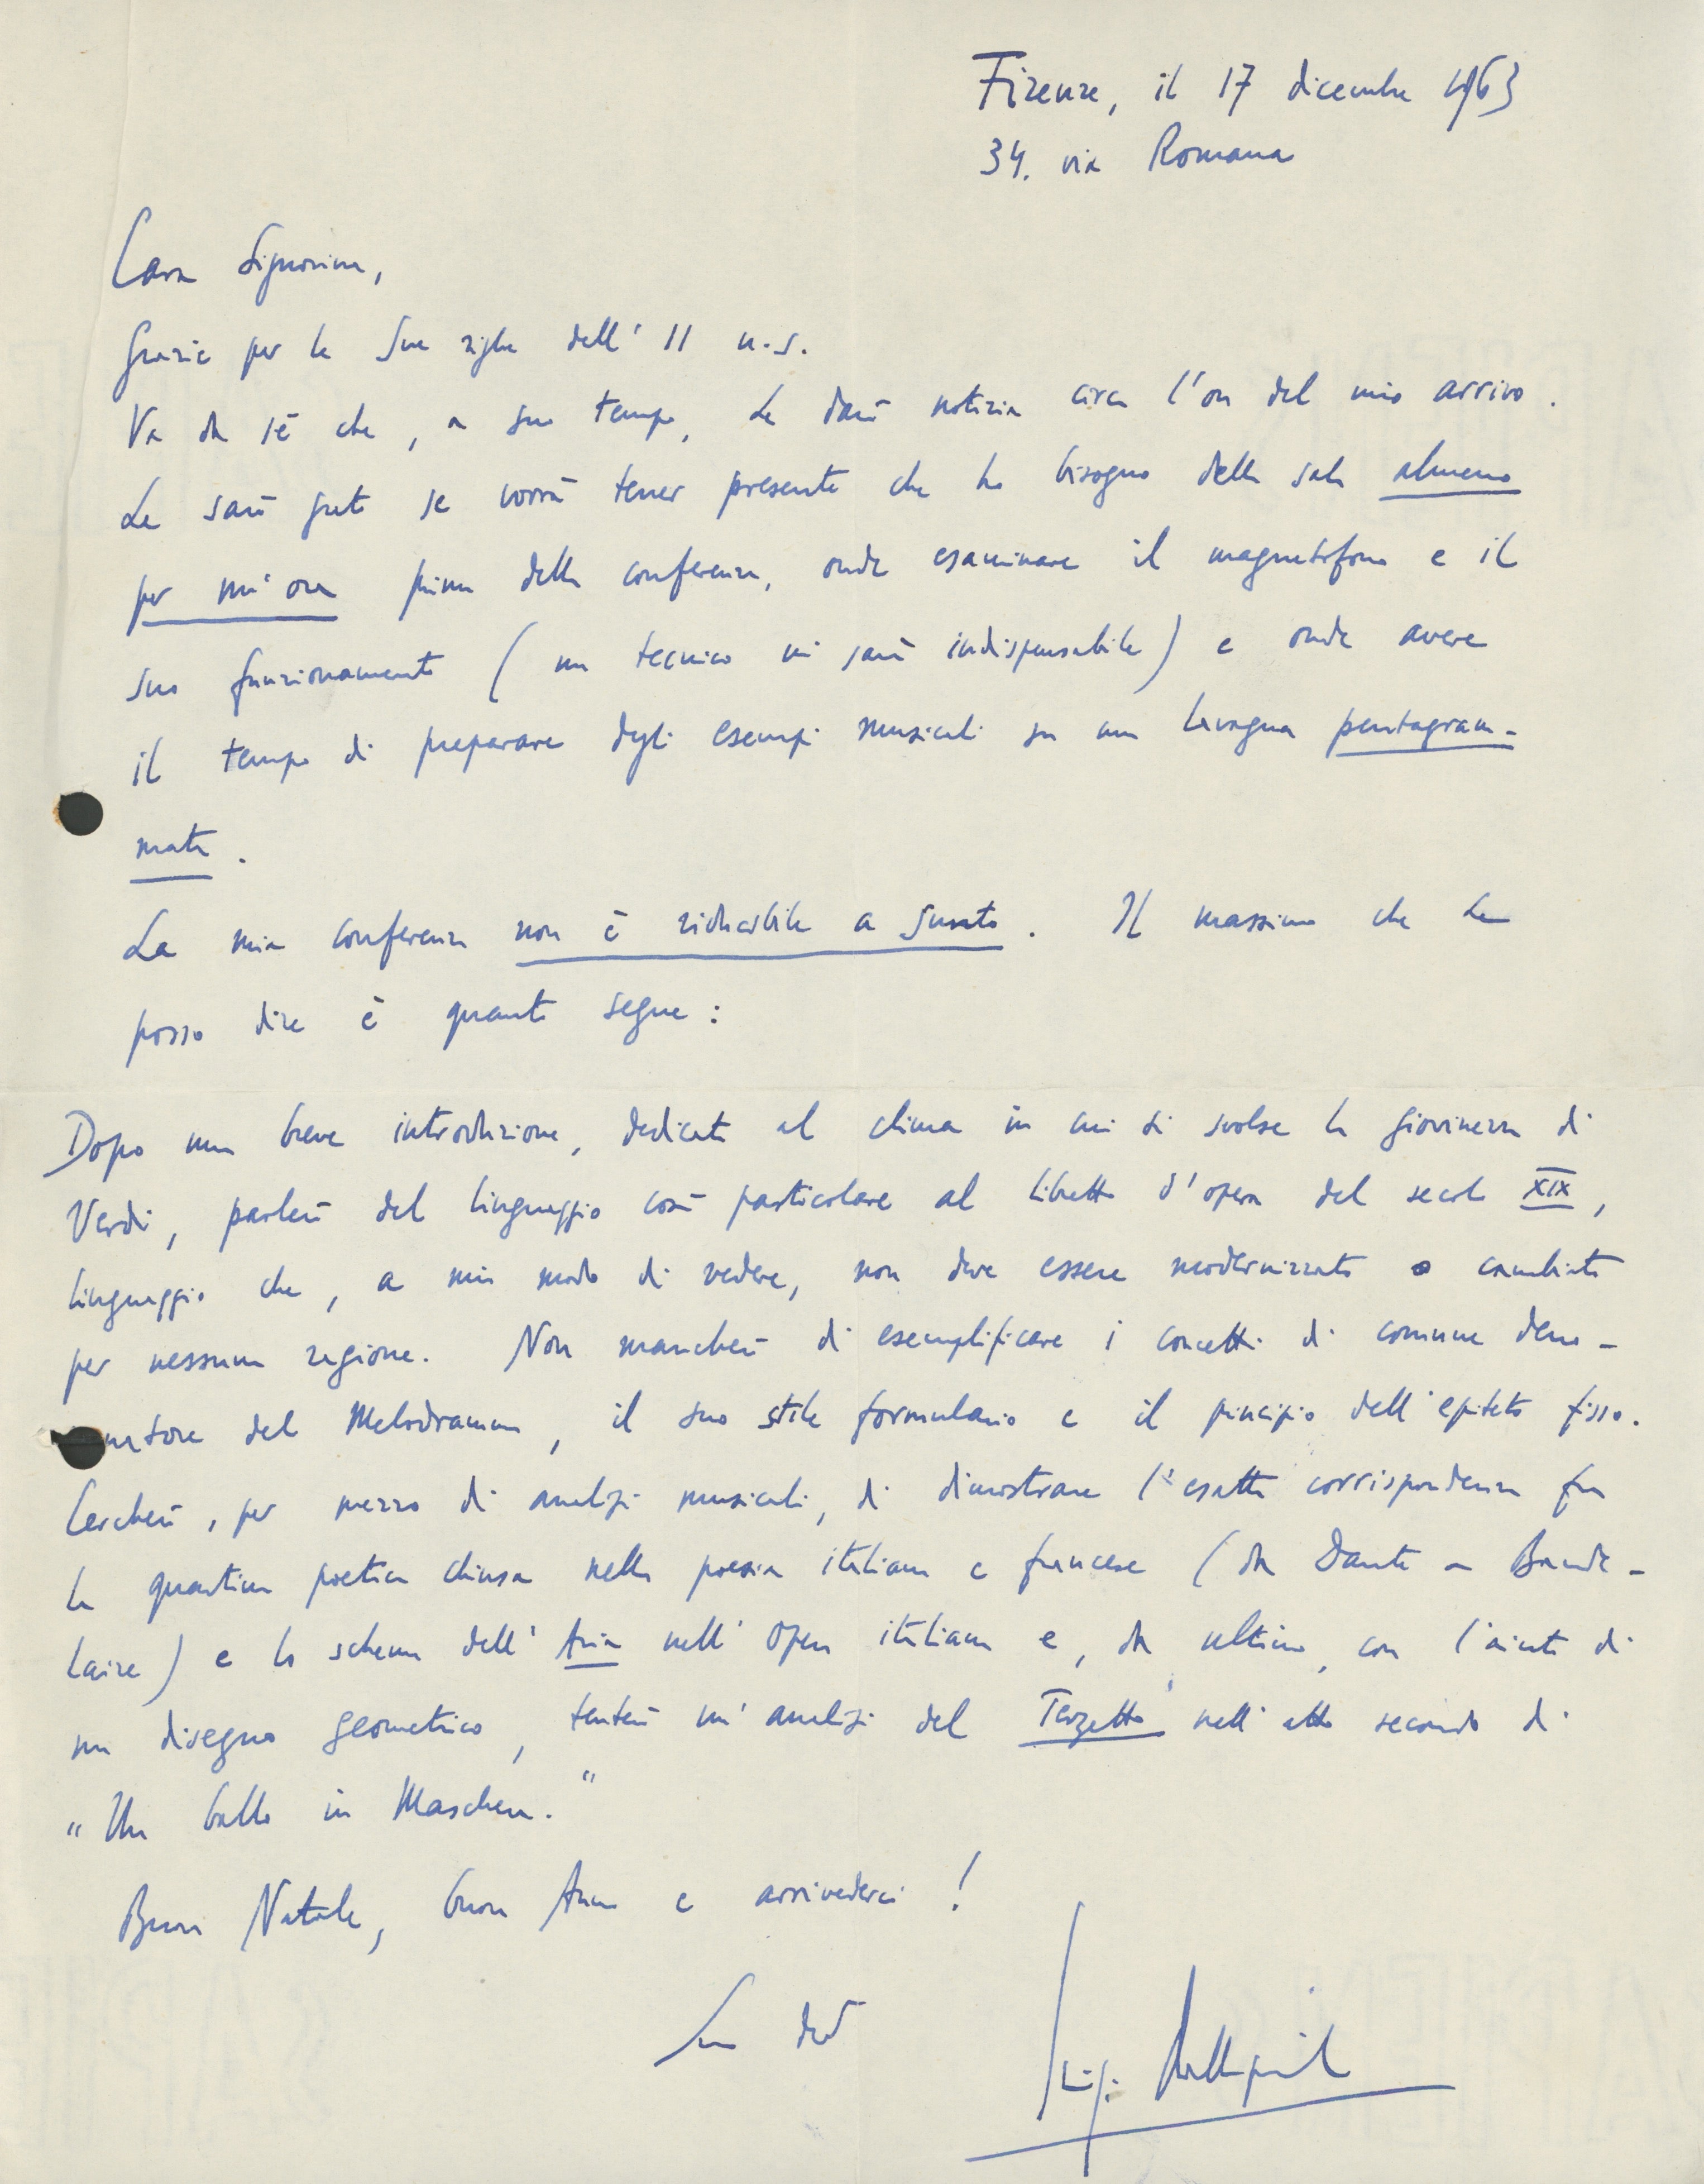 Firenze, il 17 dicembre 1963
34. via Romana
Cara Signorina,
Grazie per le Sue righe dell' 11 u.s.
Va da sé che, a suo tempo, Le darò notizia circa l'ora del mio arrivo.
Le sarò grato se vorrà tener presente che ho bisogno della sala almeno
per un'ora prima della conferenza, onde esaminare il magnetofono e il
suo funzionamento (un tecnico mi sarà indispensabile) e onde avere
il tempo di preparare degli esempi musicali su una lavagna pentagram-
mata.
La mia conferenza non è riducibile a sunto. Il massimo che Le
posso dire è quanto segue:
Dopo una breve introduzione, dedicata al clima in cui si svolse la giovinezza di
Verdi, parlerò del linguaggio così particolare al libretto d'opera del secolo XIX,
linguaggio che, a mio modo di vedere, non deve essere modernizzato o cambiato
per nessuna ragione. Non mancherò di esemplificare i concetti di comune deno-
natore del Melodramma, il suo stile formulario e il principio dell'epiteto fisso.
Cercherò, per mezzo di analisi musicali, di dimostrare l'esatta corrispondenza fra
la quartina poetica chiusa nella poesia italiana e francese (da Dante a Baude-
laire) e lo schema dell'Aria nell'Opera italiana e, da ultimo, con l'aiuto di
un disegno geometrico, tenterò un'analisi del Terzetto nell'atto secondo di
"Un ballo in Maschera."
Buon Natale, buon Anno e arrivederci!
Suo dev
Luigi Dallapiccola